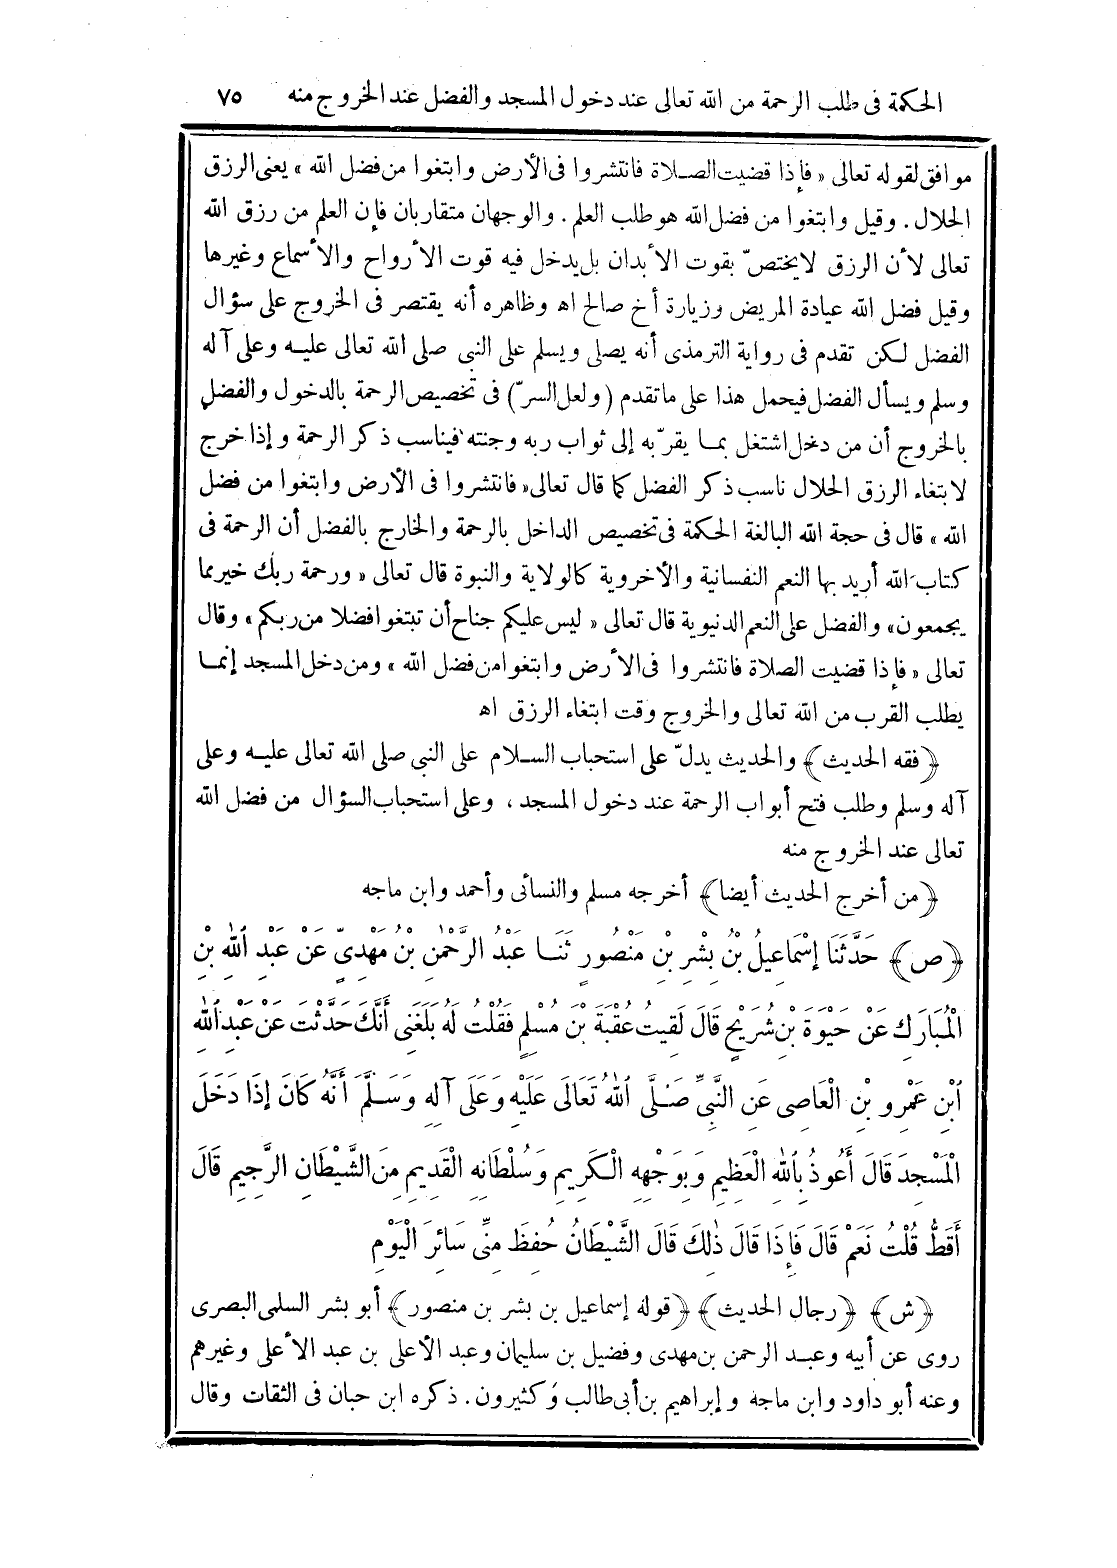 الحكمة فى طلب الرحمة من الله تعالى عند دخول المسجد والفضل عند الخروج منه ٧٥
موافق لقوله تعالى « فإذا قضيت الصـلاة فانتشروا فى الأرض وابتغوا من فضل الله » يعنى الرزق
الحلال . وقيل وابتغوا من فضل الله هو طلب العلم . والوجهان متقاربان فإن العلم من رزق الله
تعالى لأن الرزق لا يختصّ بقوت الأبدان بل يدخل فيه قوت الأرواح والأسماع وغيرها
وقيل فضل الله عيادة المريض وزيارة أخ صالح اه وظاهره أنه يقتصر فى الخروج على سؤال
الفضل لكن تقدم فى رواية الترمذى أنه يصلى ويسلم على النبى صلى الله تعالى عليـه وعلى آله
وسلم ويسأل الفضل فيحمل هذا على ما تقدم (ولعل السرّ) فى تخصيص الرحمة بالدخول والفضل
بالخروج أن من دخل اشتغل بمـا يقرّبه إلى ثواب ربه وجنته فيناسب ذكر الرحمة وإذا خرج
لابتغاء الرزق الحلال ناسب ذكر الفضل كما قال تعالى « فانتشروا فى الأرض وابتغوا من فضل
الله » قال فى حجة الله البالغة الحكمة فى تخصيص الداخل بالرحمة والخارج بالفضل أن الرحمة فى
كتاب الله أريد بها النعم النفسانية والأخروية كالولاية والنبوة قال تعالى « ورحمة ربك خير مما
يجمعون » والفضل على النعم الدنيوية قال تعالى « ليس عليكم جناح أن تبتغوا فضلا من ربكم » وقال
تعالى « فإذا قضيت الصلاة فانتشروا فى الأرض وابتغوا من فضل الله » ومن دخل المسجد إنمـا
يطلب القرب من الله تعالى والخروج وقت ابتغاء الرزق اه
﴿فقه الحديث﴾ والحديث يدلّ على استحباب السـلام على النبى صلى الله تعالى عليـه وعلى
آله وسلم وطلب فتح أبواب الرحمة عند دخول المسجد ، وعلى استحباب السؤال من فضل الله
تعالى عند الخروج منه
﴿من أخرج الحديث أيضا﴾ أخرجه مسلم والنسائى وأحمد وابن ماجه
﴿ص﴾ حَدَّثَنَا إِسْمَاعِيلُ بْنُ بِشْرِ بْنِ مَنْصُورٍ ثَنَـا عَبْدُ الرَّحْمٰنِ بْنُ مَهْدِيّ عَنْ عَبْدِ اللهِ بْنِ
الْمُبَارَكِ عَنْ حَيْوَةَ بْنِ شُرَيْحٍ قَالَ لَقِيتُ عُقْبَةَ بْنَ مُسْلِمٍ فَقُلْتُ لَهُ بَلَغَنِى أَنَّكَ حَدَّثْتَ عَنْ عَبْدِ اللهِ
ابْنِ عَمْرِو بْنِ الْعَاصِى عَنِ النَّبِىِّ صَلَّى اللهُ تَعَالَى عَلَيْهِ وَعَلَى آلِهِ وَسَـلَّمَ أَنَّهُ كَانَ إِذَا دَخَلَ
الْمَسْجِدَ قَالَ أَعُوذُ بِاللهِ الْعَظِيمِ وَبِوَجْهِهِ الْكَرِيمِ وَسُلْطَانِهِ الْقَدِيمِ مِنَ الشَّيْطَانِ الرَّجِيمِ قَالَ
أَقَطُّ قُلْتُ نَعَمْ قَالَ فَإِذَا قَالَ ذٰلِكَ قَالَ الشَّيْطَانُ حُفِظَ مِنِّى سَائِرَ الْيَوْمِ
﴿ش﴾ ﴿رجال الحديث﴾ ﴿قوله إسماعيل بن بشر بن منصور﴾ أبو بشر السلمى البصرى
روى عن أبيه وعبـد الرحمن بن مهدى وفضيل بن سليمان وعبد الأعلى بن عبد الأعلى وغيرهم
وعنه أبو داود وابن ماجه وإبراهيم بن أبى طالب وكثيرون . ذكره ابن حبان فى الثقات وقال